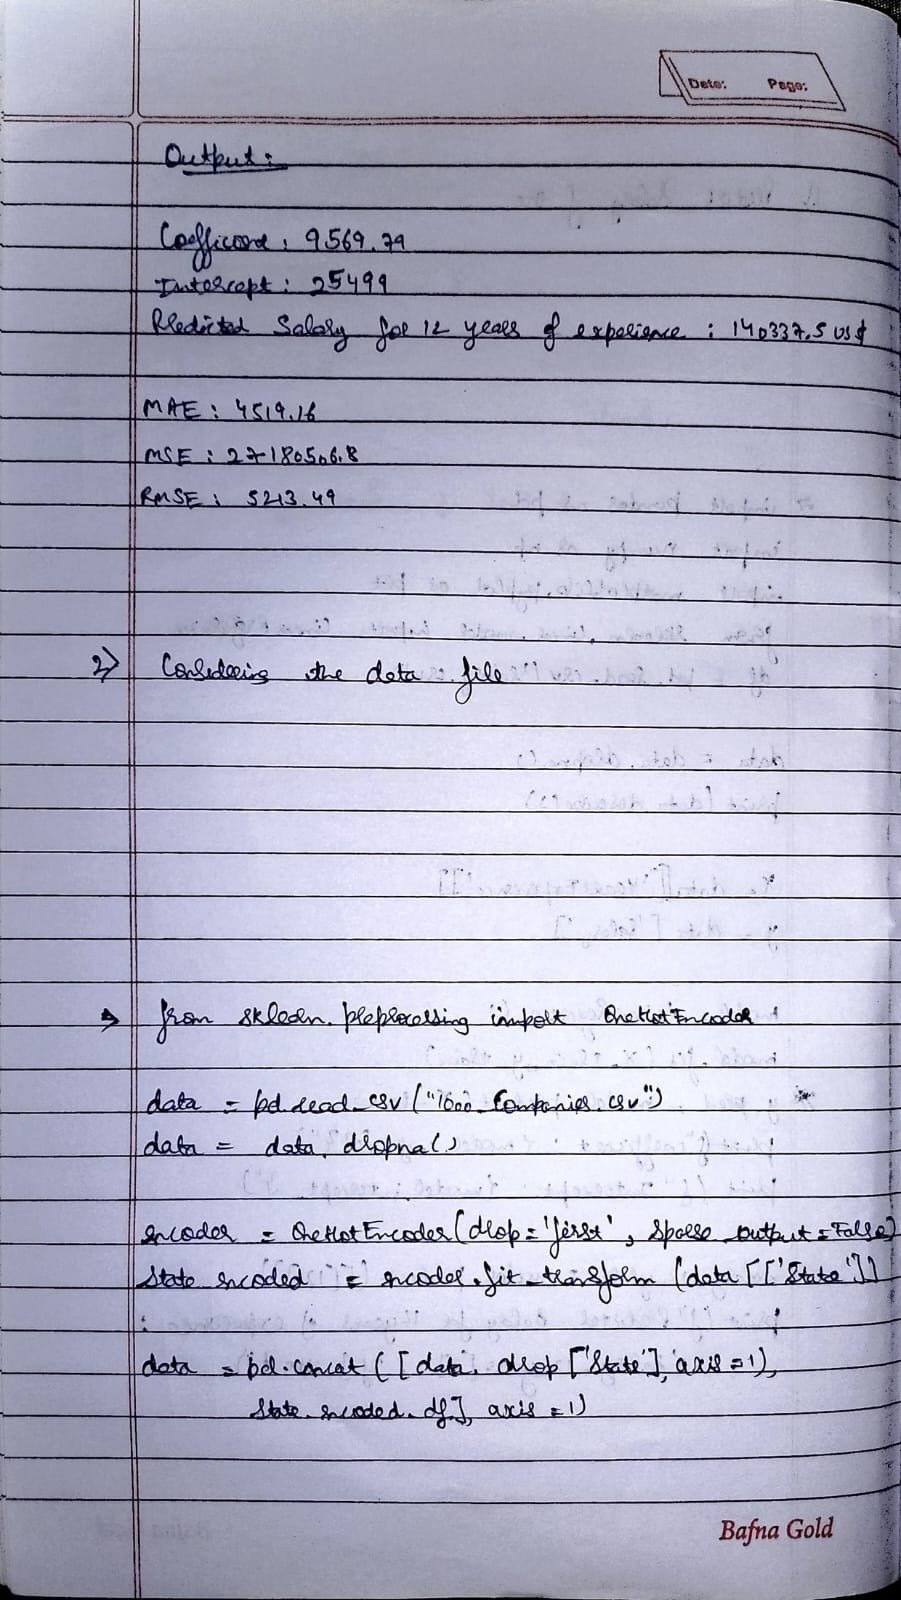 Date: Page:
Output:
Coefficient: 9569.79
Intercept: 25499
Predicted Salary for 12 years of experience: 140337.5 US$
MAE: 4519.16
MSE: 27180506.8
RMSE: 5213.49
2) Considering the data file
→ from sklearn.preprocessing import OneHotEncoder
data = pd.read_csv("1000_Companies.csv")
data = data.dropna()
encoder = OneHotEncoder(drop='first', sparse_output=False)
State encoded = encoder.fit_transform(data[['State']]
:
data = pd.concat([data.drop['State'], axis=1),
State.encoded.df], axis=1)
Bafna Gold